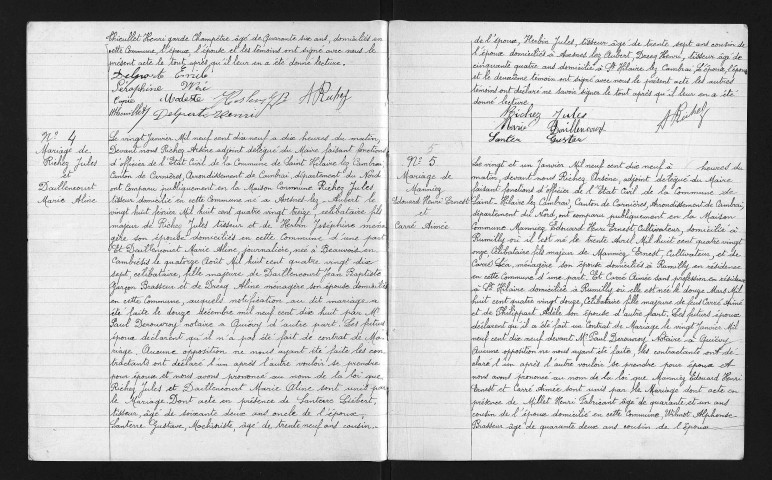 Thieullet Henri garde Champêtre âgé de Quarante six ans, domiciliés en
cette Commune, l'époux, l'épouse et les témoins ont signé avec nous le
présent acte le tout, après qu'il leur en a été donné lecture.
Delporte Emile
Séraphine
Modeste
Delporte Henri
A Richez
N° 4
Mariage de
Richez Jules
et
Daillencourt
Marie Aline
Le vingt Janvier Mil neuf cent dix neuf a dix heures du matin,
Devant nous Richez Arsène adjoint délégué du Maire faisant fonctions
d'officier de l'Etat Civil de la Commune de Saint Hilaire lez Cambrai
Canton de Carnières, Arrondissement de Cambrai, département du Nord
ont comparu publiquement en la Maison Commune Richez Jules
tisseur domicilié en cette Commune né a Avesnes lez Aubert le
vingt huit février Mil huit cent quatre vingt treize, célibataire fils
majeur de Richez Jules tisseur et de Herbin Joséphine mena
gère son épouse domiciliés en cette commune d'une part
Et Daillencourt Marie Aline journalière, née a Beauvois en
Cambrésis le quatorze Août Mil huit cent quatre vingt dix
sept, célibataire, fille majeure de Daillencourt Jean Baptiste
Garçon Brasseur et de Dresq Aline ménagère son épouse domiciliés
en cette commune, auxquels notification du dit mariage a
été faite le douze décembre mil neuf cent dix huit par Me
Paul Derouvroy notaire a Quiévy d'autre part. Les futurs
époux déclarent qu'il n'a pas été fait de contrat de Ma-
riage. Aucune opposition ne nous ayant été faite les con-
tractants ont déclaré l'un après l'autre vouloir se prendre
pour époux et nous avons prononcé au nom de la loi que
Richez Jules et Daillencourt Marie Aline sont unis par
le Mariage. Dont acte en présence de Santerre Liébert,
tisseur, âgé de soixante deux ans oncle de l'épouse,
Santerre Gustave, Machiniste, âgé de trente neuf ans cousin
de l'époux, Herbin Jules, tisseur âgé de trente sept ans cousin de
l'époux domiciliés à Avesnes lez Aubert, Dresq Henri, tisseur âgé de
cinquante quatre ans domicilié a St Hilaire lez Cambrai. L'époux, l'épouse
et le deuxième témoin ont signé avec nous le présent acte les autres
témoins ont déclaré ne savoir signer le tout après qu'il leur en a été
donné lecture.
Richez Jules
Marie Daillencourt
Santer Gustav
A Richez
5
N° 5
Mariage de
Manniez
Edouard Henri Ernest
et
Carré Aimée
Le vingt et un Janvier Mil neuf cent dix neuf à heures du
matin, devant nous Richez Arsène, adjoint délégué du Maire
faisant fonctions d'officier de l'Etat Civil de la Commune de
Saint Hilaire lez Cambrai, Canton de Carnières, Arrondissement de Cambrai,
département du Nord, ont comparu publiquement en la Maison
Commune Manniez Edouard Henri Ernest Cultivateur, domicilié à
Rumilly où il est né le trente Avril Mil huit cent quatre vingt
onze Célibataire fils majeur de Manniez Ernest, Cultivateur, et de
Carré Léa, ménagère son épouse domiciliés à Rumilly, en résidence
en cette Commune d'une part. Et Carré Aimée sans profession en résidence
à St Hilaire, domiciliée a Rumilly où elle est née le douze Mars Mil
huit cent quatre vingt douze, Célibataire fille majeure de feu Carré Aimé
et de Philippart Adèle son épouse d'autre part. Les futurs époux
déclarent qu'il a été fait un Contrat de Mariage le vingt Janvier Mil
neuf cent dix neuf devant Me Paul Derouvroy, Notaire a Quiévy
Aucune opposition ne nous ayant été faite, les contractants ont dé-
claré l'un après l'autre vouloir se prendre pour époux et
nous avons prononcé au nom de la loi que Manniez Edouard Henri
Ernest et Carré Aimée sont unis par le Mariage dont acte en
présence de Millet Henri Fabricant âgé de quarante et un ans
cousin de l'époux domicilié en cette Commune, Wibart Alphonse
Brasseur âgé de quarante deux ans cousin de l'époux